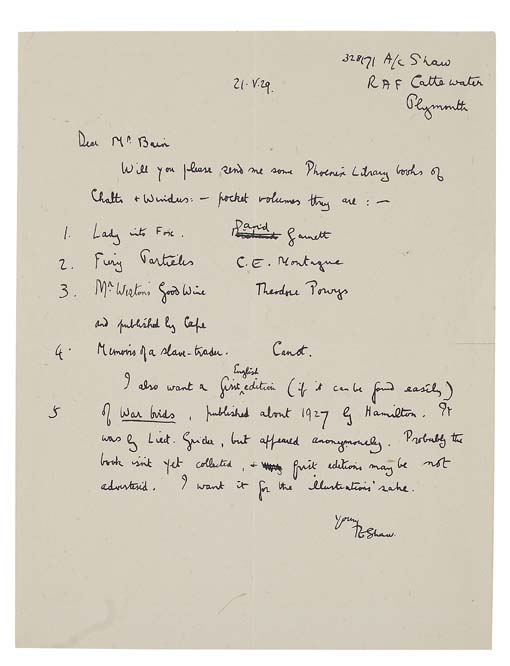 328171 A/c Shaw
21·V·29. RAF Cattewater
Plymouth
Dear Mr. Bain
Will you please send me some Phoenix Library books of
Chatto + Windus: — pocket volumes they are : —
1. Lady into Fox. David Garnett
2. Fiery Particles C.E. Montague
3. Mr Weston's Good Wine Theodore Powys
and published by Cape
4. Memoirs of a slave-trader. Canot.
I also want a first English edition (if it can be found easily)
5 of War birds, published about 1927 by Hamilton. It
was by Lieut. Grider, but appeared anonymously. Probably the
book isn't yet collected, + first editions may be not
advertised. I want it for the illustrations' sake.
Yours
TEShaw.